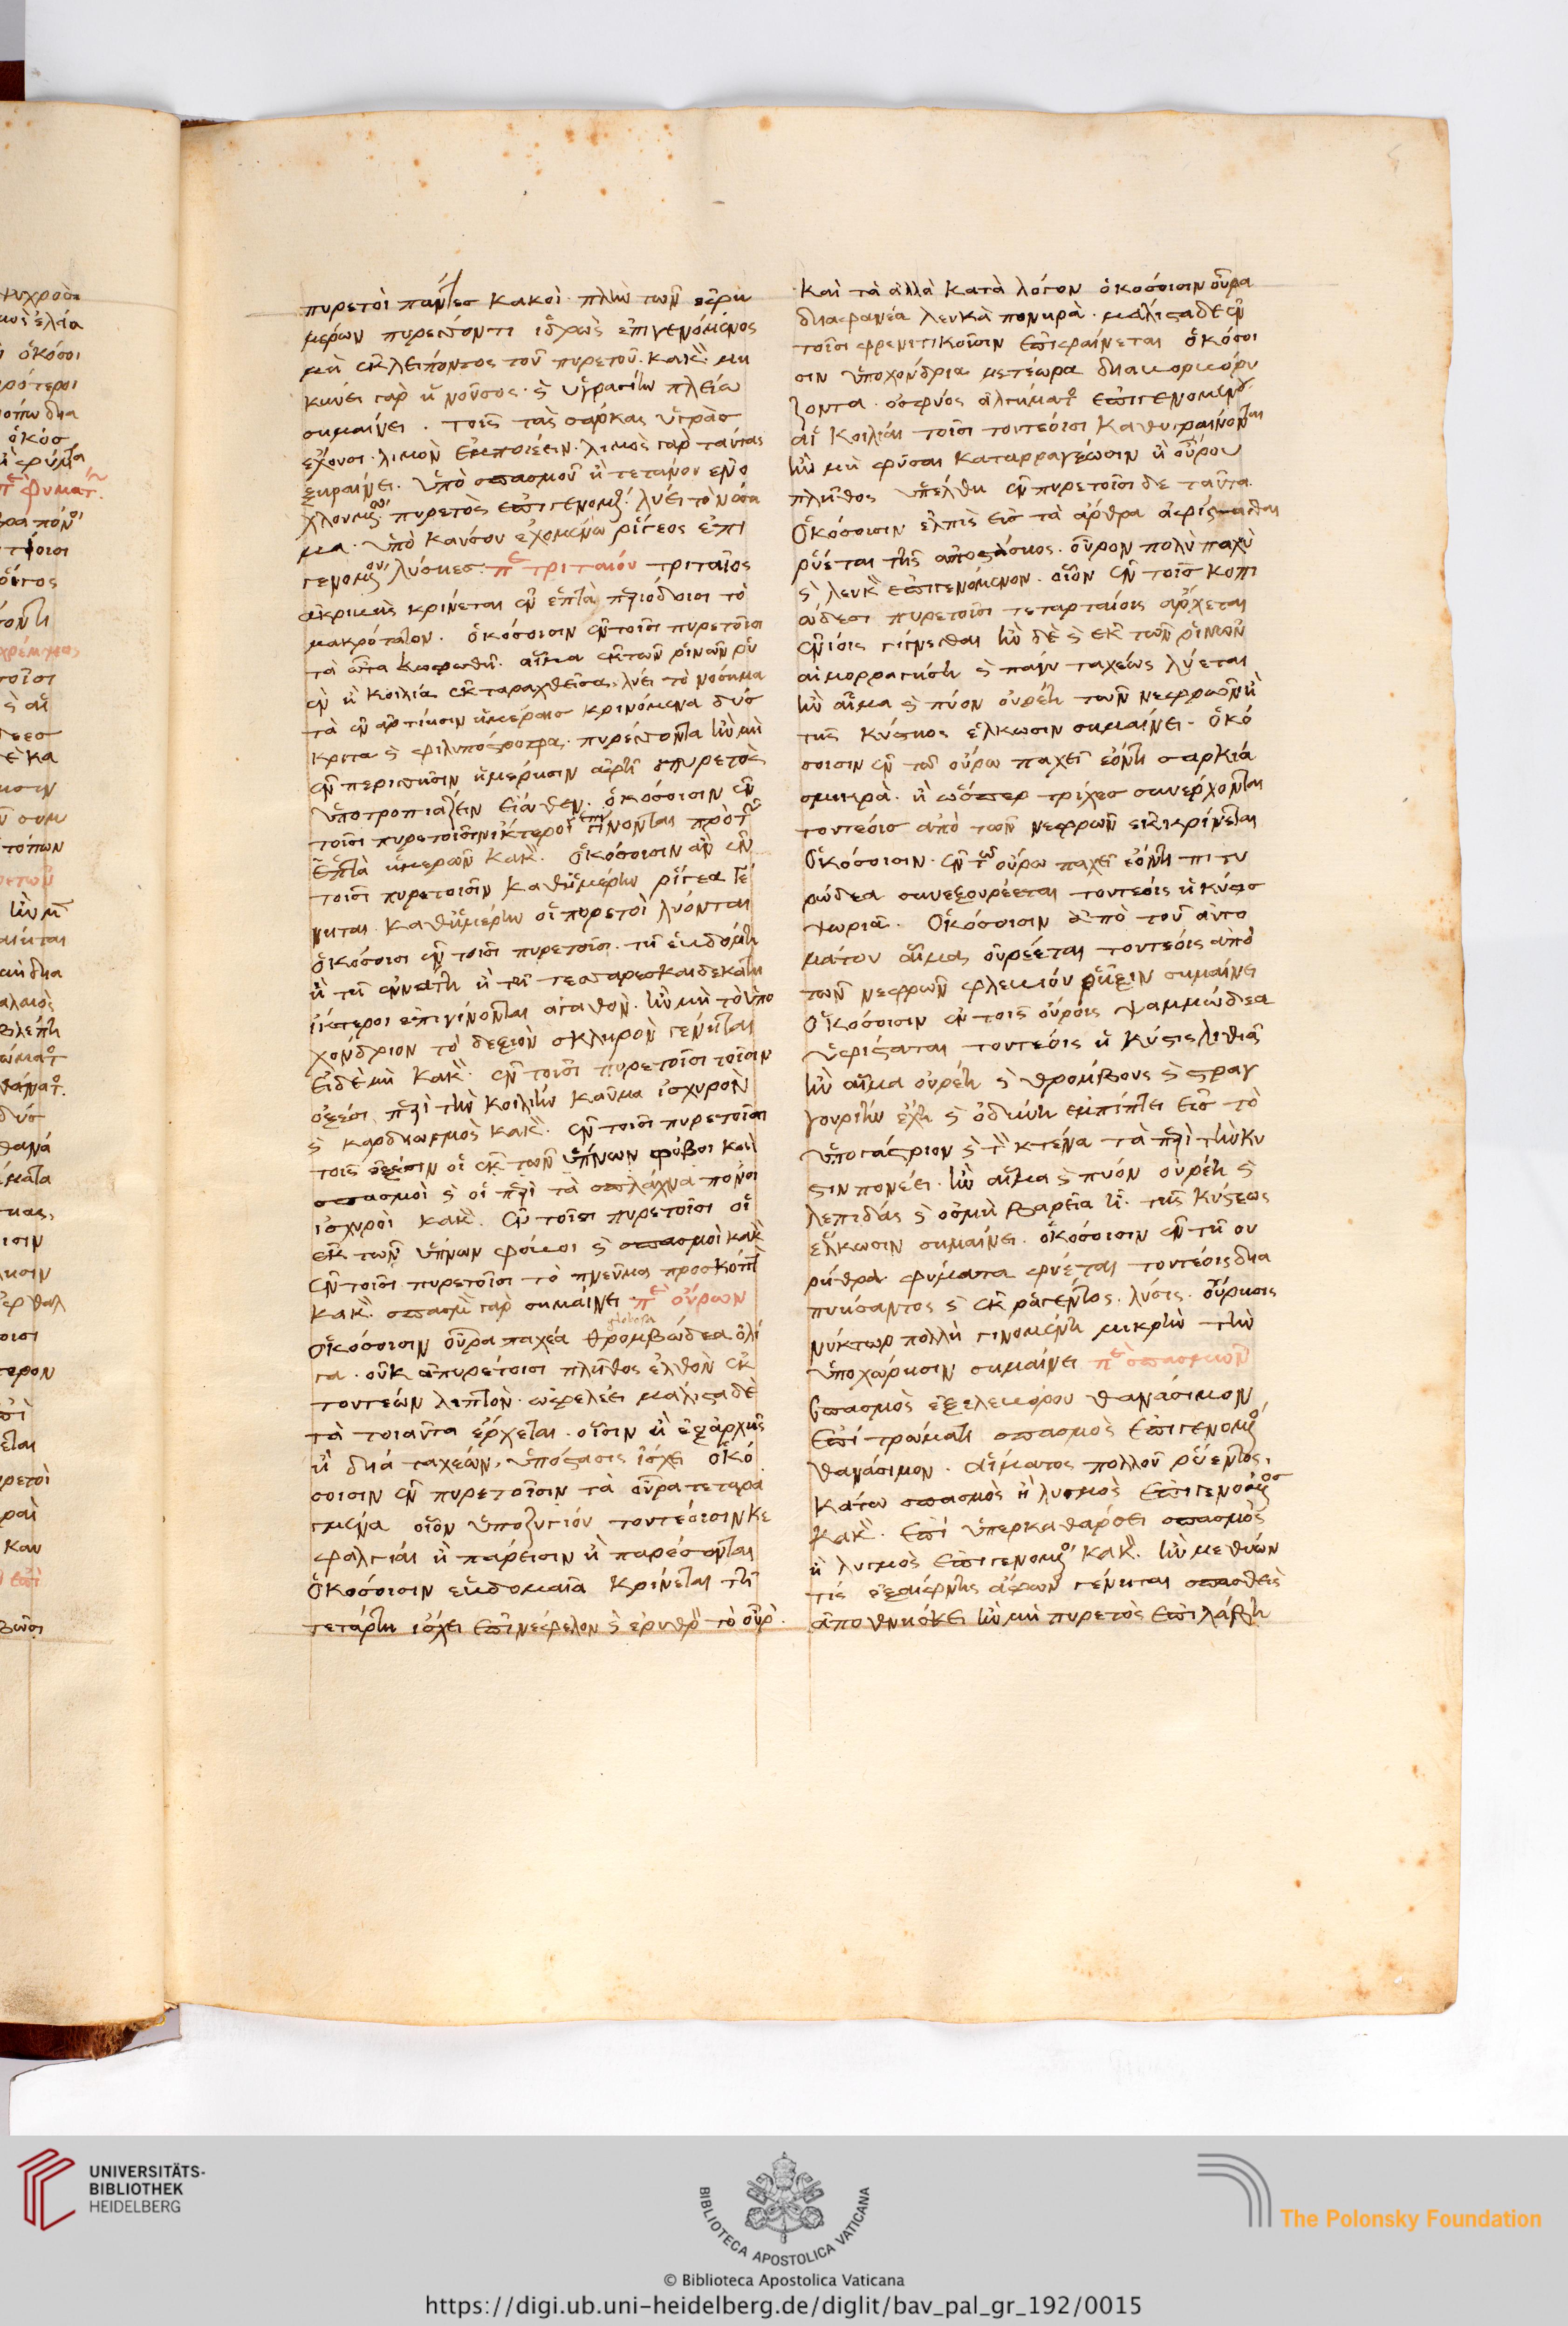 πυρετοὶ πάντες κακοὶ πλὴν τῶν ἐφη
μέρων πυρέσσοντι ἱδρὼς ἐπιγενόμενος
μὴ ἐκλείποντος τοῦ πυρετοῦ. κακὸν. μη
κύνει γὰρ ἡ νοῦσος. καὶ ὑγρασίην πλείω
σημαίνει. τοῖς τὰς σάρκας ὑγρὰσ
ἔχουσι. λιμὸν ἐμποιέειν. λιμὸς γὰρ ταύτας
ξηραίνει. ὑπὸ σπασμοῦ ἢ τετάνου ἐνο
χλουμένω πυρετὸς ἐπιγενόμενος λύει τὸ νόση
μα. ὑπὸ καύσου ἐχομένω ῥίγεος ἐπι
γενομένου λύσιες. περὶ τριταίου τριταῖος
ἀκριβὴς κρίνεται ἐν ἑπτὰ περιόδοισι τὸ
μακρότατον. ὁκόσοισιν ἐν τοῖσι πυρετοῖσι
τὰ ὦτα κωφωθῇ. αἷμα ἐκ τῶν ῥινῶν ῥυ
ὲν ἢ κοιλία ἐκταραχθεῖσα λύει τὸ νόσημα
τὰ ἐν ἀρτίησιν ἡμέραισ κρινόμενα δύσ
κριτα καὶ φιλυπόστροφα. πυρέσσοντα ἢν μὴ
ἐν περισσῆσιν ἡμέρησιν ἀφῇ ὁ πυρετὸς
ὑποτροπιάζειν εἴωθεν. ὁκόσοισιν ἐν
τοῖσι πυρετοῖσιν ἴκτεροι ἐπιγίνονται πρὸ τῶν
ἑπτὰ ἡμερῶν κακὸν. ὁκόσοισιν ἂν ἐν
τοῖσι πυρετοῖσιν καθημέρην ῥίγεα γέ
νηται καθημέρην οἱ πυρετοὶ λύονται
ὁκόσοισι ἐν τοῖσι πυρετοῖσι. τῇ ἑβδόμῃ
ἢ τῇ ἐννάτῃ ἢ τῇ τεσσαρεσκαιδεκάτῃ
ἴκτεροι ἐπιγίνονται ἀγαθὸν. ἢν μὴ τὸ ὑπο
χόνδριον τὸ δεξιὸν σκληρὸν γένηται
εἰ δὲ μὴ κακὸν. ἐν τοῖσι πυρετοῖσι τοῖσιν
ὀξέσι περὶ τὴν κοιλίην καῦμα ἰσχυρὸν
καὶ καρδιωγμὸς κακὸν. ἐν τοῖσι πυρετοῖσι
τοῖς ὀξέσιν οἱ ἐκ τῶν ὕπνων φόβοι καὶ
σπασμοὶ καὶ οἱ περὶ τὰ σπλάχνα πόνοι
ἰσχυροὶ κακὸν. ἐν τοῖσι πυρετοῖσι οἱ
ἐκ τῶν ὕπνων φόβοι καὶ σπασμοὶ κακὸν
ἐν τοῖσι πυρετοῖσι τὸ πνεῦμα προσκόπτον
κακὸν. σπασμὸν γὰρ σημαίνει περὶ οὔρων
ὁκόσοισιν οὖρα παχέα θρομβώδεα ὀλί
γα. οὐκ ἀπυρέτοισι πλῆθος ἐλθὸν ἐκ
τουτέων λεπτὸν. ὠφελέει μάλιστα δὲ
τὰ τοιαῦτα ἔρχεται. οἷσιν ἢ ἐξἀρχῆς
ἢ διὰ ταχέων ὑπόστασις ἴσχει ὁκό
σοισιν ἐν πυρετοῖσιν τὰ οὖρα τεταρα
γμένα οἷον ὑποζυγίου τουτέοισιν κε
φαλγίαι ἢ πάρεισιν ἢ παρέσονται
ὁκόσοισιν ἑβδομαῖα κρίνεται τῇ
τετάρτῃ ἴσχει ἐπινέφελον καὶ ἐρυθρὸν τὸ οὖρον.
καὶ τὰ ἄλλα κατὰ λόγον ὁκόσοισιν οὖρα
διαφανέα λευκὰ πονηρὰ. μάλιστα δὲ ἐν
τοῖσι φρενιτικοῖσιν ἐπιφαίνεται ὁκόσοι
σιν ὑποχόνδρια μετέωρα διαβορβορύ
ζοντα. ὀσφύος ἀλγήματος ἐπιγενομένου
αἱ κοιλίαι τοῖσι τουτέοισι καθυγραίνονται
ἢν μὴ φῦσαι καταρραγέωσιν ἢ οὔρου
πλῆθος ὑπέλθη ἐν πυρετοῖσι δὲ ταῦτα.
ὁκόσοισιν ἐλπὶς εἰς τὰ ἄρθρα ἀφίστασθαι
ῥύεται τῆς ἀποστάσιος. οὖρον πολὺ παχὺ
καὶ λευκὸν ἐπιγενόμενον. οἷον ἐν τοῖσ κοπι
ώδεσι πυρετοῖσι τεταρταίοις ἄρχεται
ἐνίοις γίγνεσθαι ἢν δὲ καὶ ἐκ τῶν ῥινῶν
αἱμορραγήσῃ καὶ πάνυ ταχέως λύεται
ἢν αἷμα καὶ πύον οὐρέῃ τῶν νεφρῶν ἢ
τῆς κύστιος ἕλκωσιν σημαίνει. ὁκό
σοισιν ἐν τῶ οὔρω παχεῖ ἐόντι σαρκία
σμικρὰ. ἢ ὥσπερ τρίχεσ συνέρχονται
τουτέοις ἀπὸ τῶν νεφρῶν ἐκκρίνεται
ὁκόσοισιν. ἐν τῶ οὔρω παχεῖ ἐόντι πιτυ
ρώδεα συνεξουρέεται τουτέοις ἡ κύστισ
ψωριᾶ. ὁκόσοισιν ἀπὸ τοῦ αὐτο
μάτου αἷμα οὐρέεται τουτέοις ἀπὸ
τῶν νεφρῶν φλεβίου ῥῆξιν σημαίνει
ὁκόσοισιν ἐν τοῖς οὔροις ψαμμώδεα
ὑφίσταται τουτέοις ἡ κύστις λιθιᾶ
ἢν αἷμα οὐρέῃ καὶ θρόμβους καὶ στραγ
γουρίην ἔχῃ καὶ ὀδύνη ἐμπίπτει εἰσ τὸ
ὑπογάστριον καὶ τὸν κτένα τὰ περὶ τὴν κύ
στιν πονέει. ἢν αἷμα καὶ πυόν οὐρέῃ καὶ
λεπιδάς καὶ ὀσμὴ βαρεῖα ἦ. τῆς κύστεως
ἕλκωσιν σημαίνει. ὁκόσοισιν ἐν τῇ οὐ
ρήθρα φύματα φύεται τουτέοις δια
πυήσαντος καὶ ἐκραγέντος. λύσις. οὔρησις
νύκτωρ πολλὴ γινομένη μικρὴν τὴν
ὑποχώρησιν σημαίνει περὶ σπασμῶν
σπασμὸς ἐξ ἐλεβόρου θανάσιμον
ἐπὶ τρώματι σπασμὸς ἐπιγενόμενος
θανάσιμον. αἵματος πολλοῦ ῥυέντος.
κάτω σπασμὸς ἢ λυγμὸς ἐπιγενόμενοσ
κακὸν. ἐπὶ ὑπερκαθάρσει σπασμὸς
ἢ λυγμὸς ἐπιγενόμενος κακὸν. ἢν μεθύων
τίς ἐξαίφνης ἄφων γένηται σπασθεὶς
ἀποθνήσκει ἢν μὴ πυρετὸς ἐπιλάβῃ
UNIVERSITÄTS-
BIBLIOTHEK
HEIDELBERG
BIBLIOTECA APOSTOLICA VATICANA
The Polonsky Foundation
© Biblioteca Apostolica Vaticana
https://digi.ub.uni-heidelberg.de/diglit/bav_pal_gr_192/0015